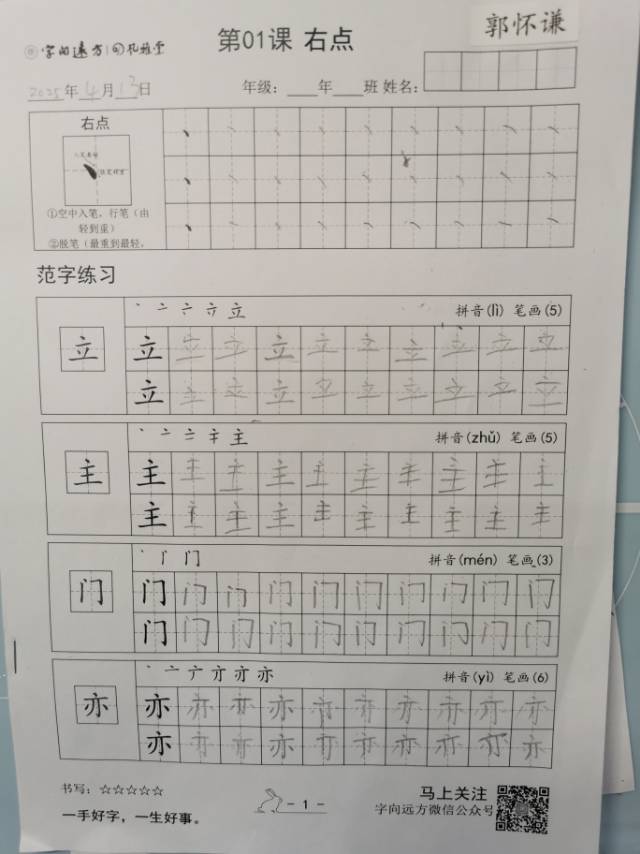 字向远方 孔雅堂
第01课 右点
郭怀谦
2025年4月13日
年级：____年____班 姓名：
右点
①空中入笔，行笔（由
轻到重）
②脱笔（最重到最轻，
范字练习
立 拼音(lì) 笔画(5)
立 立 立 立 立 立 立 立 立 立 立
立 立 立 立 立 立 立 立 立 立
主 拼音(zhǔ) 笔画(5)
主 主 主 主 主 主 主 主 主 主 主
主 主 主 主 主 主 主 主 主 主
门 拼音(mén) 笔画(3)
门 门 门 门 门 门 门 门 门 门 门
门 门 门 门 门 门 门 门 门 门
亦 拼音(yì) 笔画(6)
亦 亦 亦 亦 亦 亦 亦 亦 亦 亦 亦
亦 亦 亦 亦 亦 亦 亦 亦 亦 亦
书写：☆☆☆☆☆
一手好字，一生好事。
- 1 -
马上关注
字向远方微信公众号